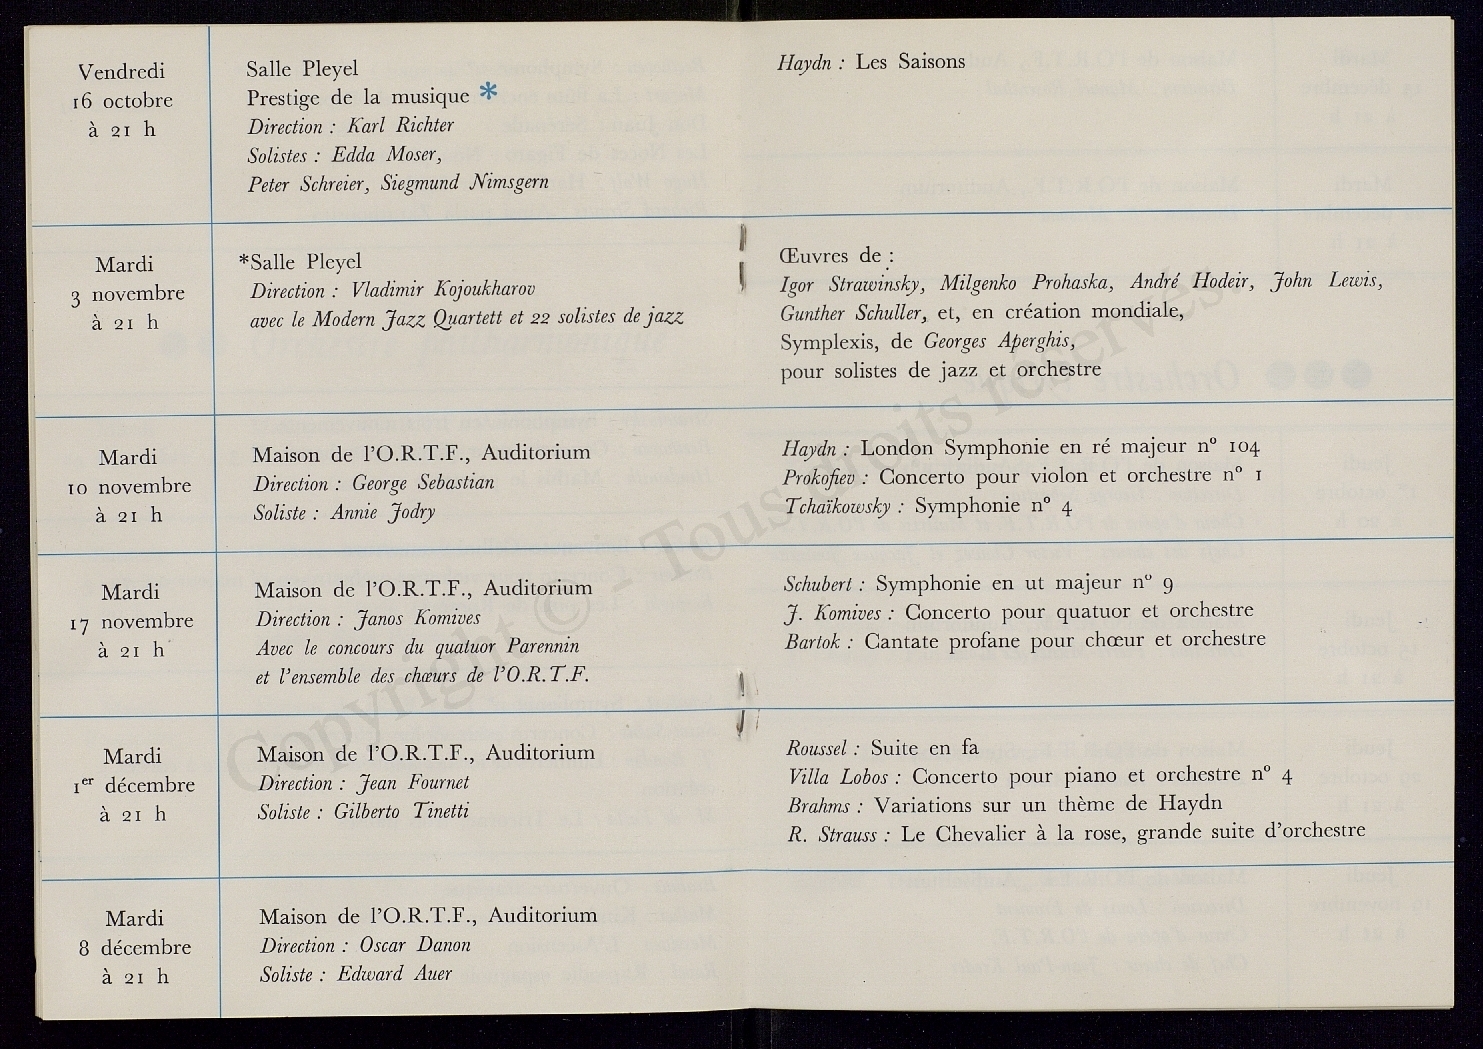 Vendredi
16 octobre
à 21 h
Salle Pleyel
Prestige de la musique *
Direction : Karl Richter
Solistes : Edda Moser,
Peter Schreier, Siegmund Nimsgern
Haydn : Les Saisons
Mardi
3 novembre
à 21 h
*Salle Pleyel
Direction : Vladimir Kojoukharov
avec le Modern Jazz Quartett et 22 solistes de jazz
Œuvres de :
Igor Strawinsky, Milgenko Prohaska, André Hodeir, John Lewis,
Gunther Schuller, et, en création mondiale,
Symplexis, de Georges Aperghis,
pour solistes de jazz et orchestre
Mardi
10 novembre
à 21 h
Maison de l'O.R.T.F., Auditorium
Direction : George Sebastian
Soliste : Annie Jodry
Haydn : London Symphonie en ré majeur nº 104
Prokofiev : Concerto pour violon et orchestre nº 1
Tchaïkowsky : Symphonie nº 4
Mardi
17 novembre
à 21 h
Maison de l'O.R.T.F., Auditorium
Direction : Janos Komives
Avec le concours du quatuor Parennin
et l'ensemble des chœurs de l'O.R.T.F.
Schubert : Symphonie en ut majeur nº 9
J. Komives : Concerto pour quatuor et orchestre
Bartok : Cantate profane pour chœur et orchestre
Mardi
1er décembre
à 21 h
Maison de l'O.R.T.F., Auditorium
Direction : Jean Fournet
Soliste : Gilberto Tinetti
Roussel : Suite en fa
Villa Lobos : Concerto pour piano et orchestre nº 4
Brahms : Variations sur un thème de Haydn
R. Strauss : Le Chevalier à la rose, grande suite d'orchestre
Mardi
8 décembre
à 21 h
Maison de l'O.R.T.F., Auditorium
Direction : Oscar Danon
Soliste : Edward Auer
Copyright © - Tous droits réservés.